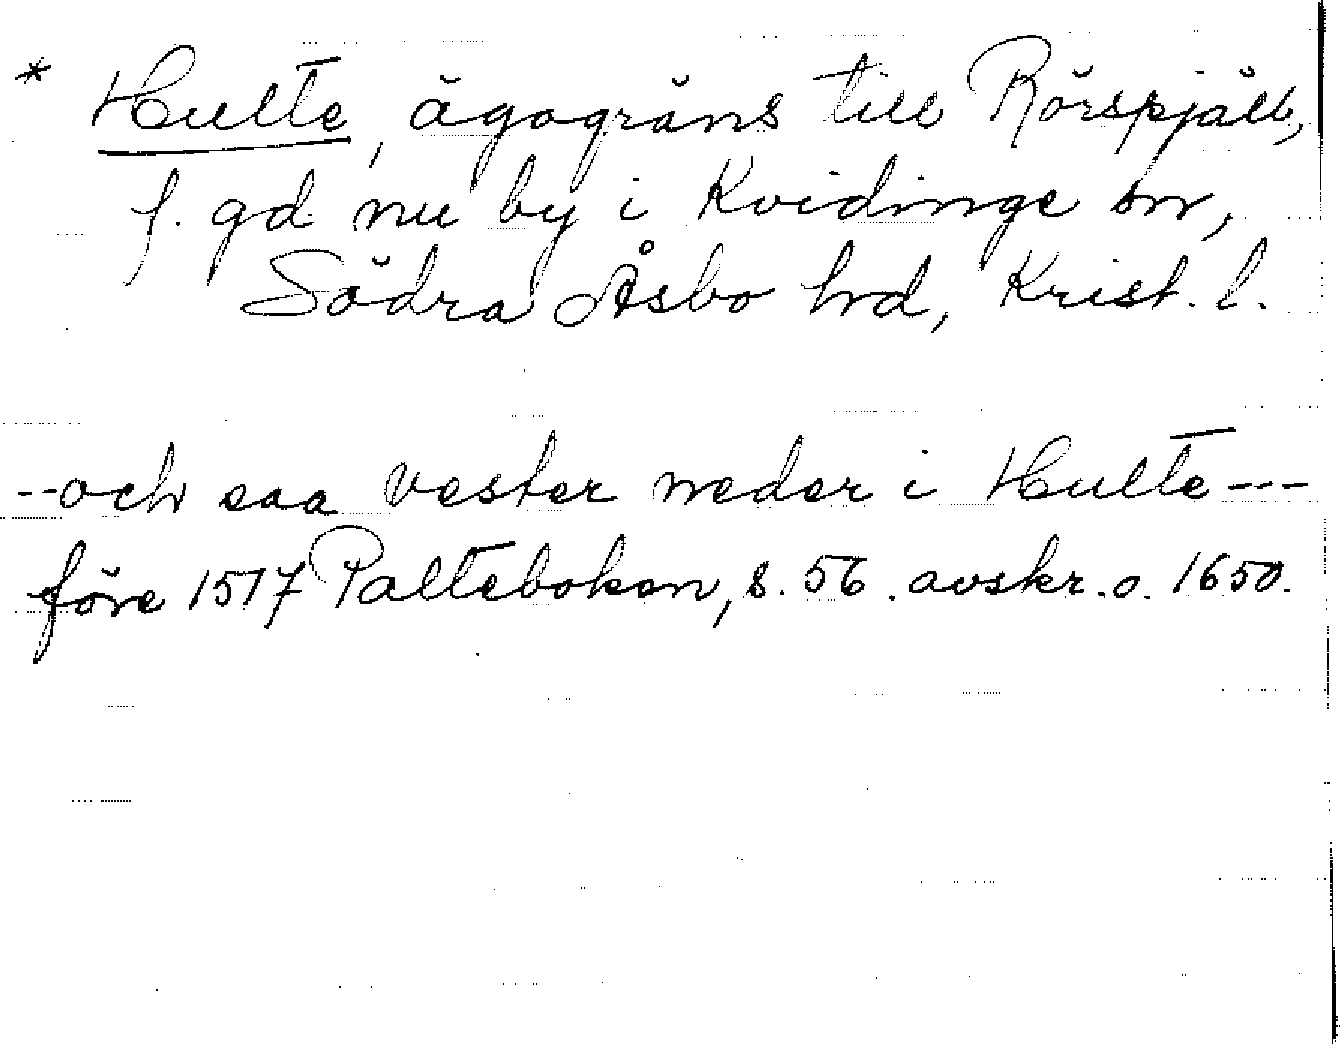 * Hulte, ägogräns till Rörspjäll,
f. gd nu by i Kvidinge sn,
Södra Åsbo hrd, Krist. l.
--och saa vester neder i Hulte---
före 1517 Palteboken, s. 56. avskr. o. 1650.